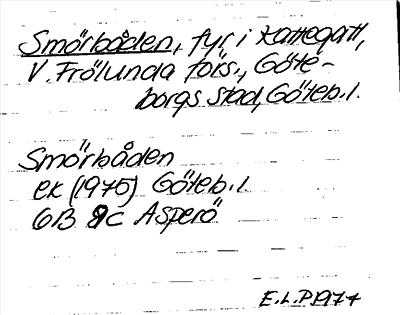 Smörbåden, fyr, i Kattegatt,
V. Frölunda förs., Göte-
borgs stad, Göteb. l.
Smörbåden
ek (1975) Göteb. l.
6B 9c Asperö
E.L.P 1977